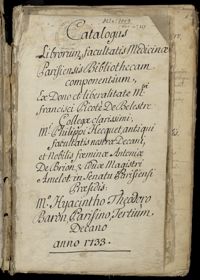 Catalogus
Librorum facultatis Medicinæ
Parisiensis Bibliothecam
componentium,
Ex Dono et liberalitate M.gri
francisci Picoté De Belestre
Collegæ clarissimi,
M. Philippi Hecquet antiqui
facultatis nostræ Decani,
et Nobilis foeminæ Antoniæ
De Brion, & Magistri
Amelot in Senatu Parisiensi
Præsidis:
M.o Hyacintho Theodoro
Baron, Parisino, Tertium
Decano
anno 1733.